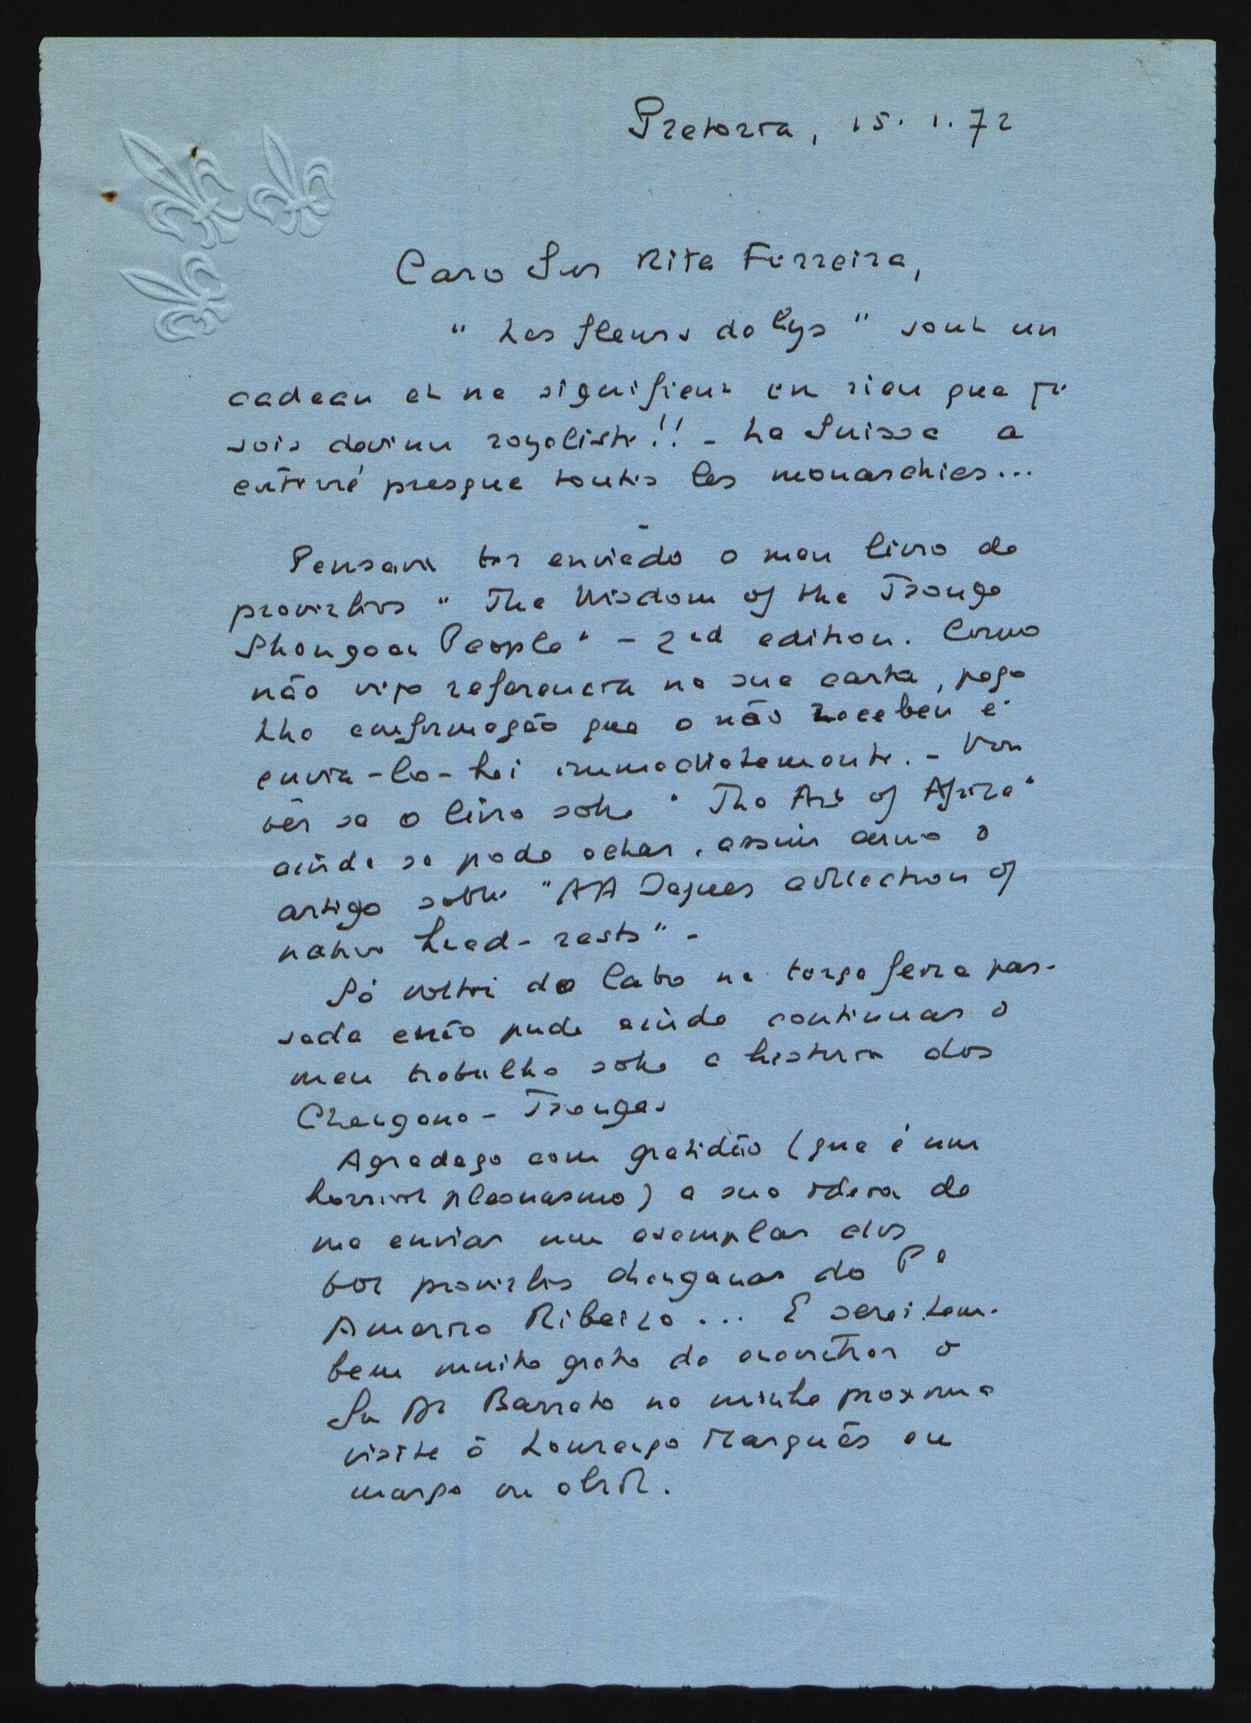 Pretoria, 15.1.72
Caro Snr Rita Ferreira,
"Les fleurs de lys" sont un
cadeau et ne signifient en rien que je
sois devenu royaliste!! - La Suisse a
enterré presque toutes les monarchies...
Pensava ter enviado o meu livro de
proverbios "The Wisdom of the Tsonga
Shangaan People" - 2nd edition. Como
não vejo referencia na sua carta, peço
lhe confirmação que o não recebeu e
envia-lo-hei immediatemente. - Vou
vêr se o livro sobre "The Art of Africa"
ainda se pode achar, assim como o
artigo sobre "AA Jaques collection of
native head-rests" -
Só voltei do Cabo na terça feira pas-
sada e não pude ainda continuar o
meu trabalho sobre a historia dos
Changana-Tsongas
Agradeço com gratidão (que é um
horrivel pleonasmo) a sua ideia de
me enviar um exemplar dos
proverbios changanas do Pe
Americo Ribeiro... E serei tam-
bem muito grato de encontrar o
Sr Dr Barreto na minha proxima
visita à Lourenço Marquês em
março ou abril.